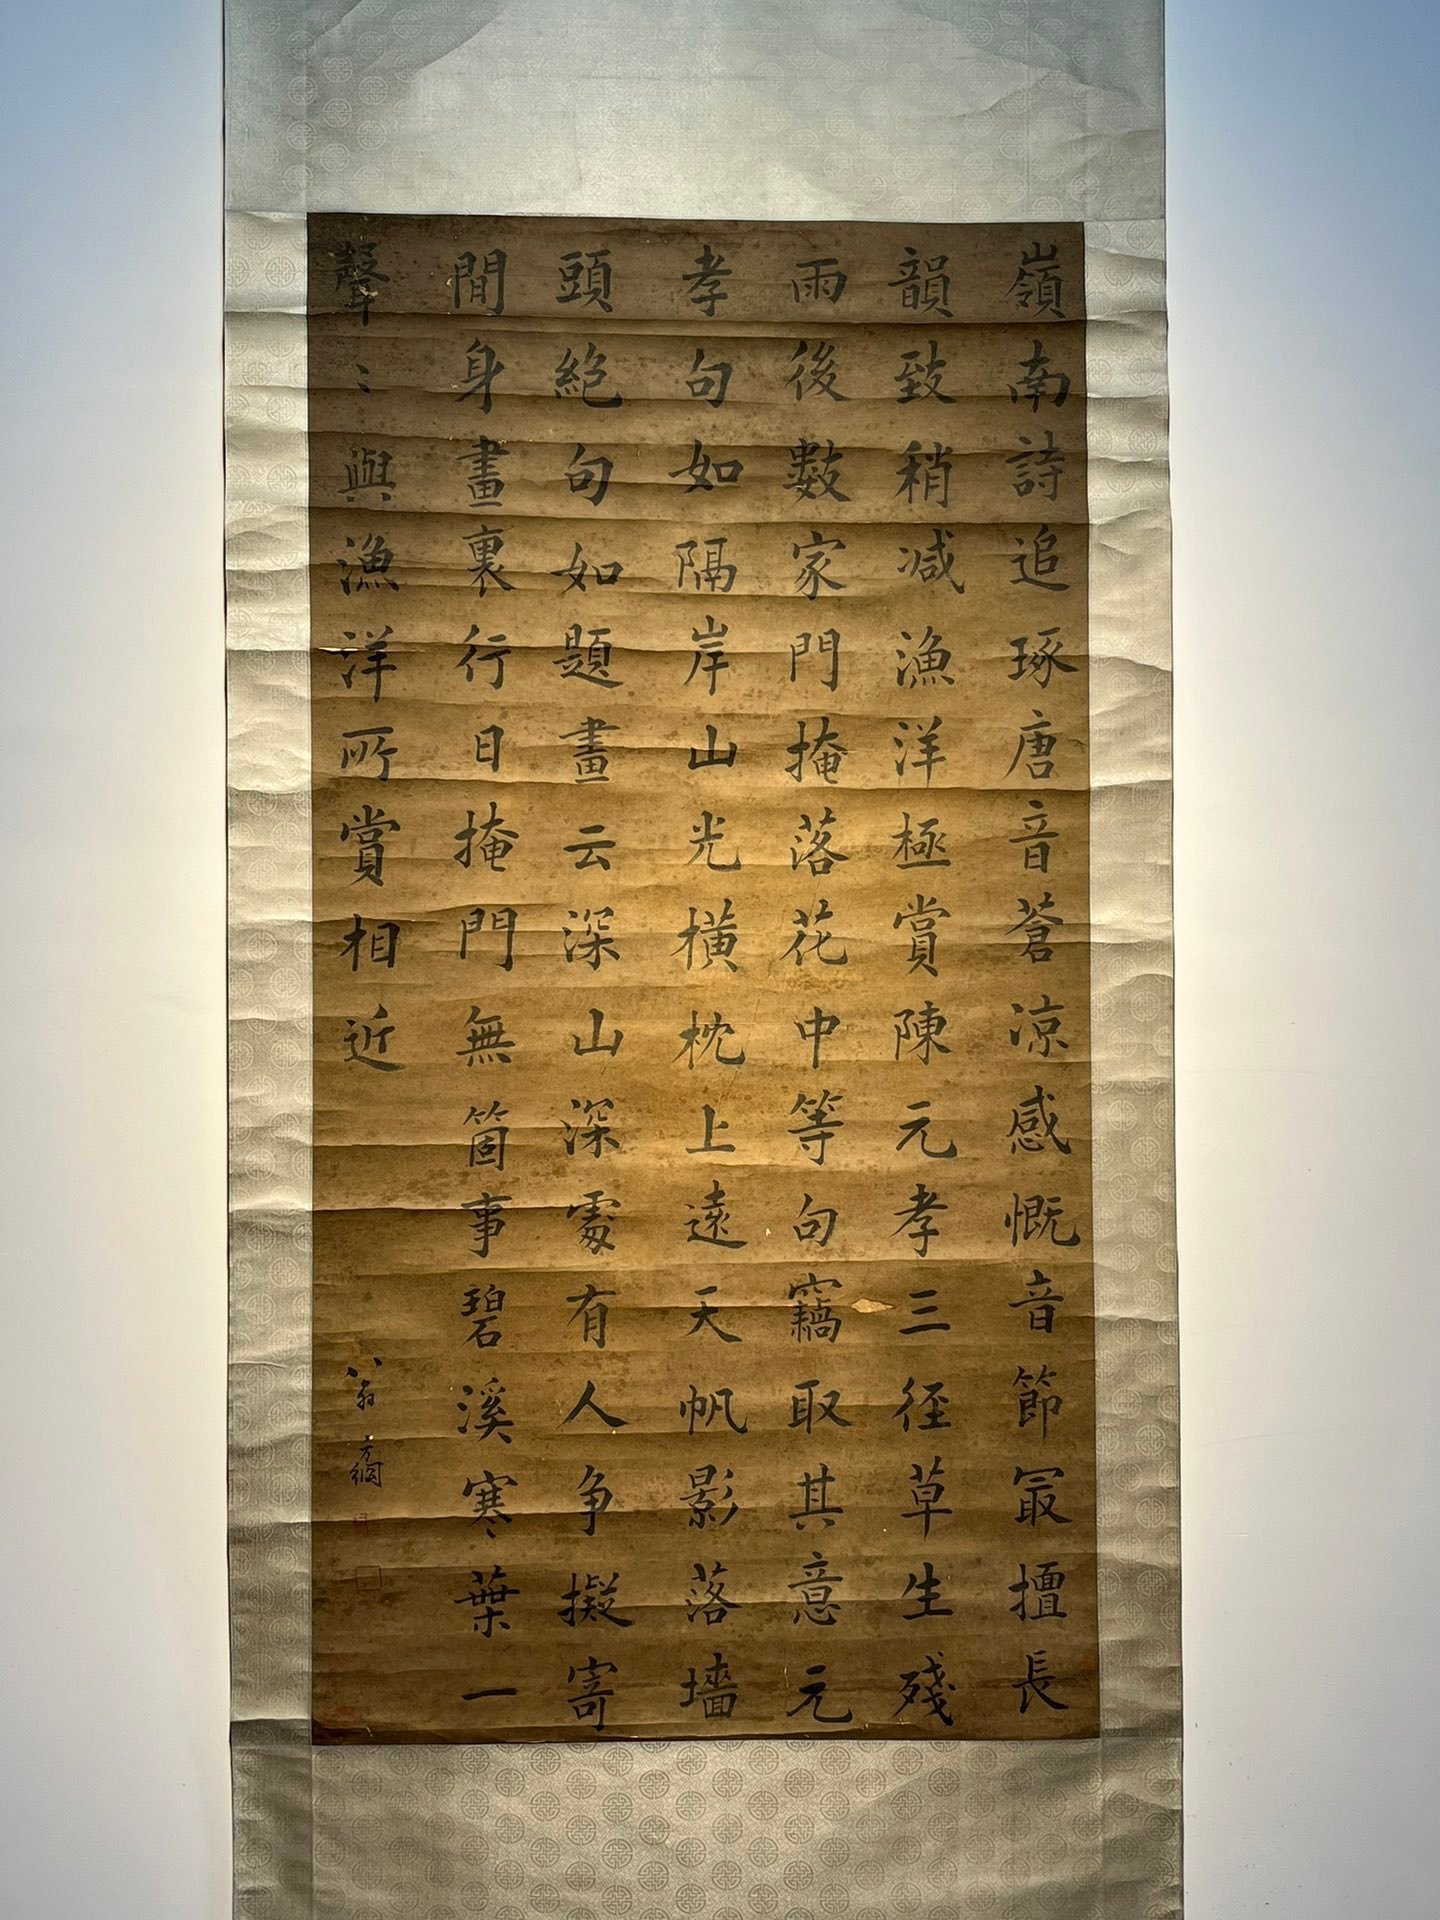 嶺南詩追琢唐音蒼凉感慨音節冣擅長
韻致稍减漁洋極賞陳元孝三径草生殘
雨後數家門掩落花中等句竊取其意元
孝句如隔岸山光橫枕上遠天帆影落墻
頭絶句如題畫云深山深處有人争擬寄
間身畫裏行日掩門無箇事碧溪寒葉一
聲〻與漁洋所賞相近
翁方綱